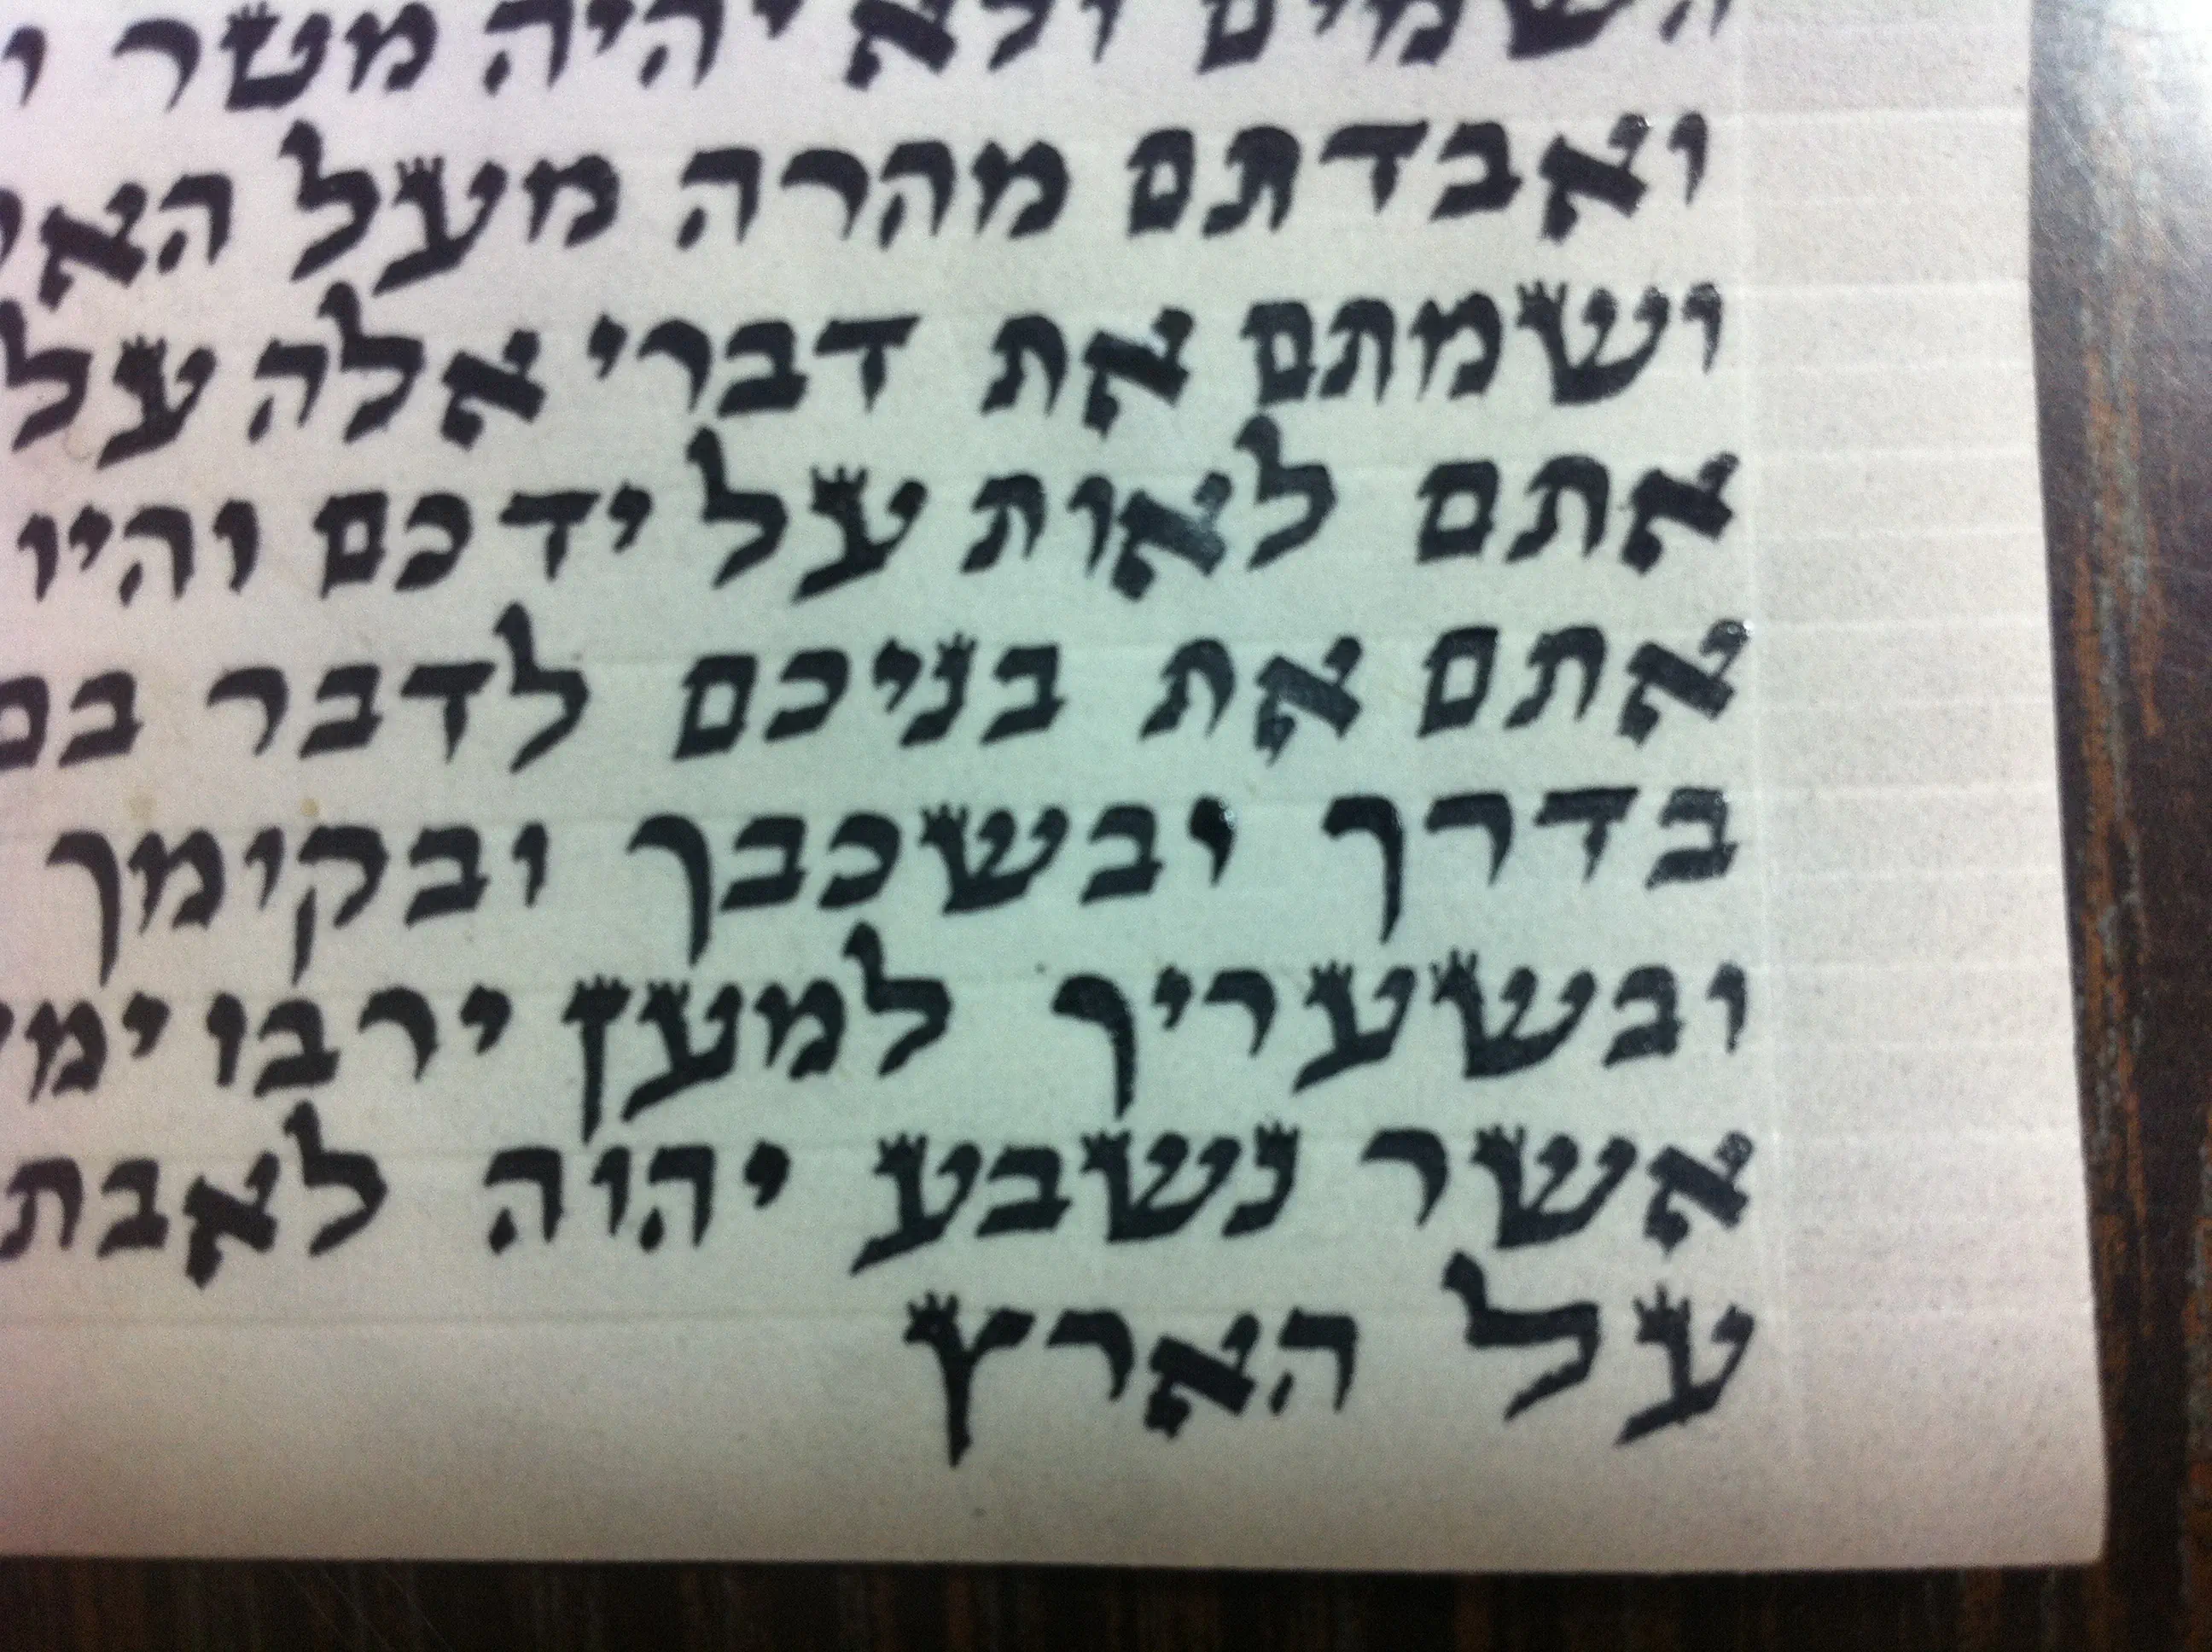 השמים ולא יהיה מטר
ואבדתם מהרה מעל
ושמתם את דברי אלה על
אתם לאות על ידכם והיו
אתם את בניכם לדבר בם
בדרך ובשכבך ובקומך
ובשעריך למען ירבו
אשר נשבע יהוה לאבת
על הארץ